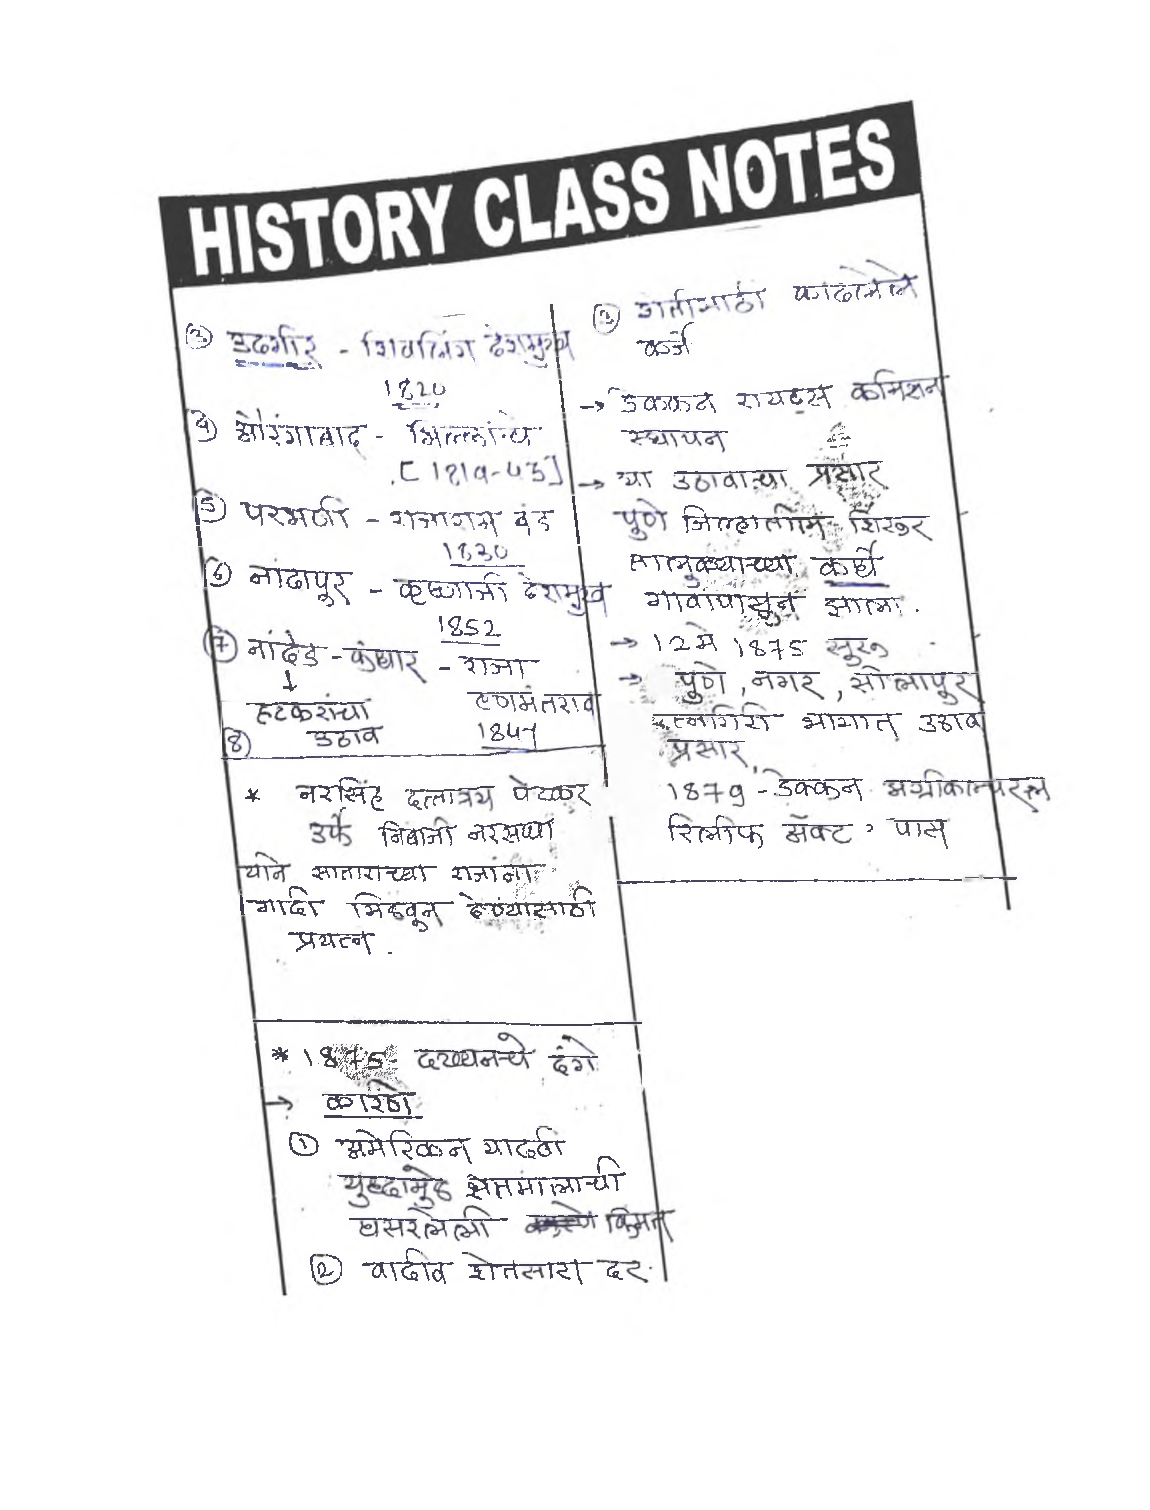 HISTORY CLASS NOTES
③ उदगीर - शिवलिंग देशमुख
1820
④ औरंगाबाद - भिल्लांचे
[1819-
⑤ परभणी - राजाराम बंड
1830
⑥ नांदापूर - कृष्णाजी देशमुख
1852
⑦ नांदेड - कंधार - राजा
↓
हटकरांचा हणमंतराव
उठाव
⑧
* नरसिंह दत्तात्रय पेटकर
उर्फ नरसप्पा
याने साताराच्या राजांना
गादी मिळवून देण्यासाठी
प्रयत्न .
* 1875 - दख्खनचे दंगे
→ कारणे
① अमेरिकन यादवी
युद्धामुळे शेतमालाची
घसरलेली किंमत
② वाढीव शेतसारा दर.
③ शेतीसाठी काढलेले
कर्ज
→ डेक्कन रायट्स कमिशन
स्थापन
→ या उठावाचा प्रसार
पुणे जिल्हातील शिरूर
तालुक्याच्या कर्डे
गावापासून झाला .
→ 12 मे 1875 सुरू
→ पुणे , नगर , सोलापूर
रत्नागिरी भागात उठाव
प्रसार,
1879 - डेक्कन अॅग्रीकल्चरल
रिलीफ अॅक्ट पास